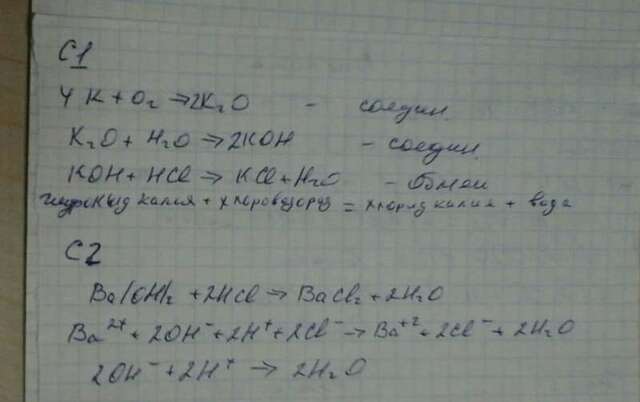 С1
4K + O₂ → 2K₂O - соедин.
K₂O + H₂O → 2KOH - соедин.
KOH + HCl → KCl + H₂O - обмен
гидроксид калия + хлороводород = хлорид калия + вода
С2
Ba(OH)₂ + 2HCl → BaCl₂ + 2H₂O
Ba²⁺ + 2OH⁻ + 2H⁺ + 2Cl⁻ → Ba⁺² + 2Cl⁻ + 2H₂O
2OH⁻ + 2H⁺ → 2H₂O